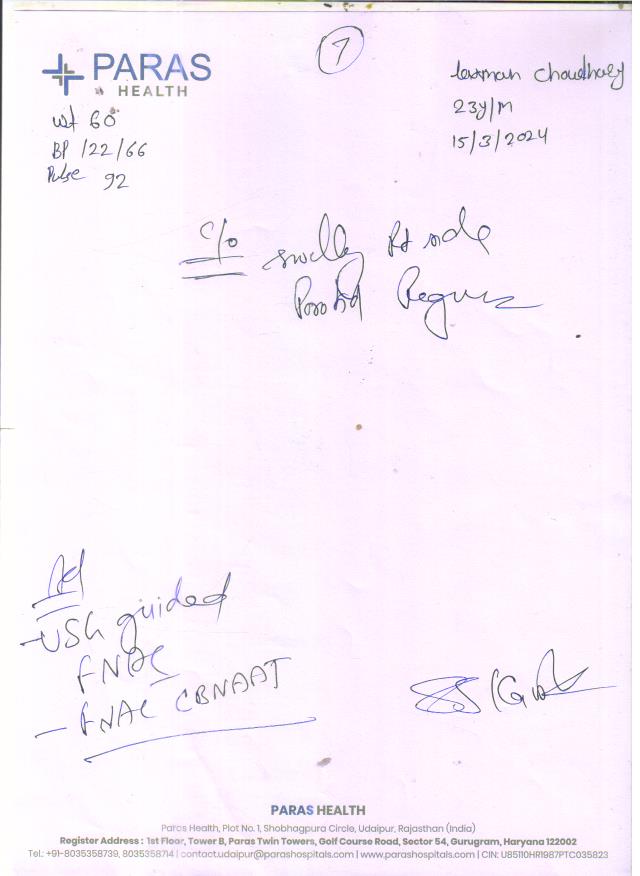 7
PARAS
HEALTH
laxman choudhary
23y/M
15/3/2024
wt 60
BP 122/66
Pulse 92
c/o swelling Rt side
Parotid Region
Ad
- USG guided
FNAC
- FNAC CBNAAT
PARAS HEALTH
Paras Health, Plot No. 1, Shobhagpura Circle, Udaipur, Rajasthan (India)
Register Address : 1st Floor, Tower B, Paras Twin Towers, Golf Course Road, Sector 54, Gurugram, Haryana 122002
Tel.: +91-8035358739, 8035358714 | contact.udaipur@parashospitals.com | www.parashospitals.com | CIN: U85110HR1987PTC035823